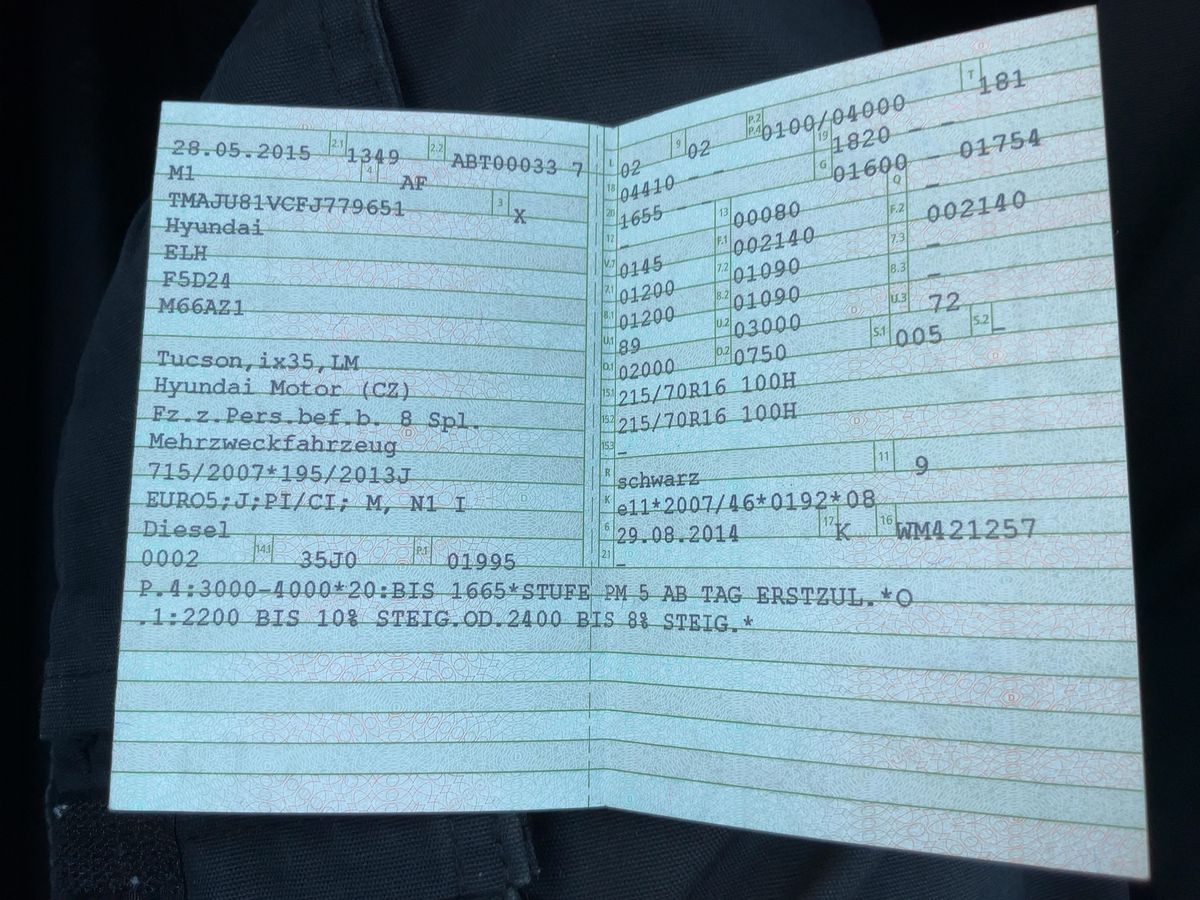 28.05.2015 2.1 1349 2.2 ABT00033 7
M1 4 AF
TMAJU81VCFJ779651 3 X
Hyundai
ELH
F5D24
M66AZ1
Tucson,ix35,LM
Hyundai Motor (CZ)
Fz.z.Pers.bef.b. 8 Spl.
Mehrzweckfahrzeug
715/2007*195/2013J
EURO5;J;PI/CI; M, N1 I
Diesel
0002 14.1 35J0 P.1 01995
L 02 9 02 P.2 P.4 0100/04000 T 181
18 04410 – – 19 1820 – –
20 1655 – G 01600 – 01754
12 – 13 00080 Q –
V.7 0145 F.1 002140 F.2 002140
7.1 01200 7.2 01090 7.3 –
8.1 01200 8.2 01090 8.3 –
U.1 89 U.2 03000 U.3 72
O.1 02000 O.2 0750 S.1 005 S.2 –
15.1 215/70R16 100H
15.2 215/70R16 100H
15.3 –
R schwarz 11 9
K e11*2007/46*0192*08
6 29.08.2014 17 K 16 WM421257
21 –
P.4:3000-4000*20:BIS 1665*STUFE PM 5 AB TAG ERSTZUL.*O
.1:2200 BIS 10% STEIG.OD.2400 BIS 8% STEIG.*